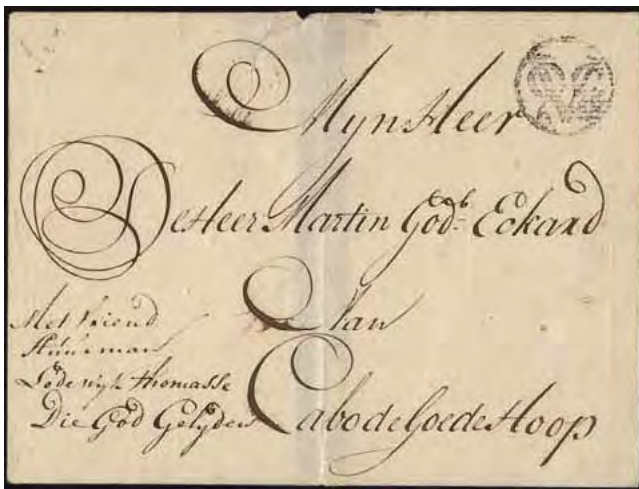 MynHeer
DeHeer Martin God.b Eckard
Aan
Cabo de Goede Hoop
Met Vriend
Stuurman
Lodewyk Thomasse
Die God Gelyde